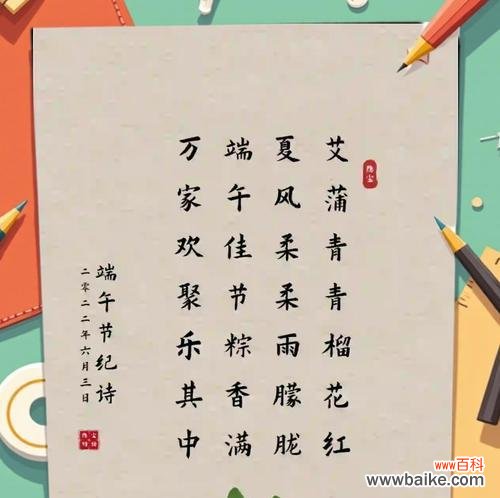 艾蒲青青榴花红
夏风柔柔雨朦胧
端午佳节粽香满
万家欢聚乐其中
端午节纪诗
二零二二年六月三日
www百科
www.baike.com